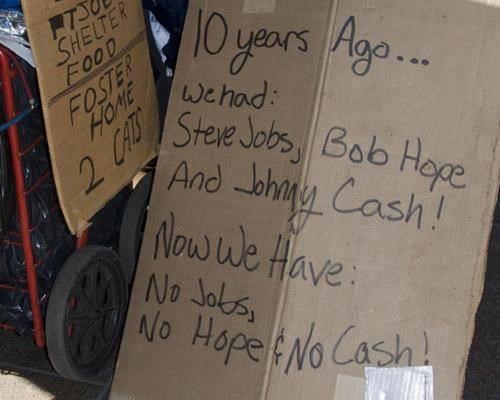 SHELTER
FOOD
FOSTER
HOME
2 CATS
10 years Ago...
we had:
Steve Jobs, Bob Hope
And Johnny Cash!
Now We Have:
No Jobs,
No Hope & No Cash!